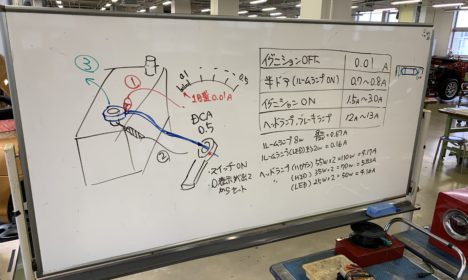 ③
①
0.1
0.5
1目盛0.01A
DCA
0.5
②
スイッチON
からセット
イグニションOFF 0.01 A
半ドア (ルームランプON) 0.7〜0.8A
イグニションON 1.5A〜3.0A
ヘッドランプ、ブレーキランプ 12A〜13A
ルームランプ 8w = 0.67A
ルームランプ(LED) 2w = 0.16A
ヘッドランプ (ハロゲン) 55w×2=110w = 9.17A
〃 (HID) 35w×2=70w = 5.83A
(LED) 25w×2=50w = 4.16A